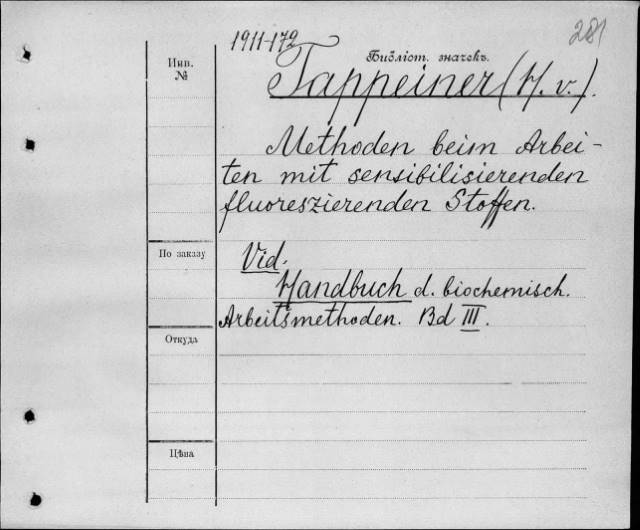 281
1911-172
Библіот. значекъ.
Инв.
№
Tappeiner (H. v.).
Methoden beim Arbei-
ten mit sensibilisierenden
fluoreszierenden Stoffen.
По заказу
Vid.
Handbuch d. biochemisch.
Arbeitsmethoden. Bd III.
Откуда
Цѣна